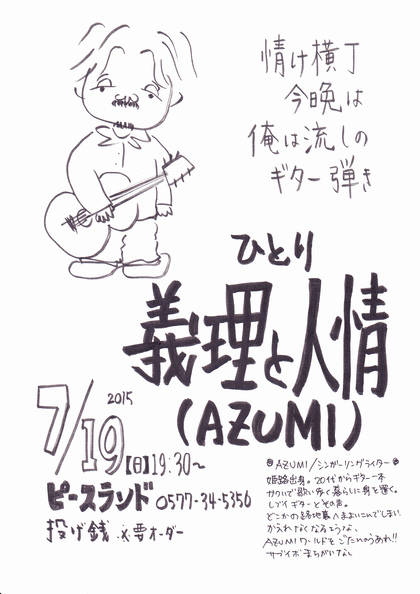 情け横丁
今晩は
俺は流しの
ギター弾き
ひとり
義理と人情
(AZUMI)
7/19 2015 [日] 19:30~
ピースランド 0577-34-5356
投げ銭 ※要オーダー
AZUMI/シンガーソングライター
姫路出身。20代からギター一本
かついで歌い歩く暮らしに身を置く。
しブイギターとその声。
どこかの路地裏へまよいこんでしまい
かえれなくなるような、
AZUMIワールドをごたんのうあれ!!
サブイボまちがいなし